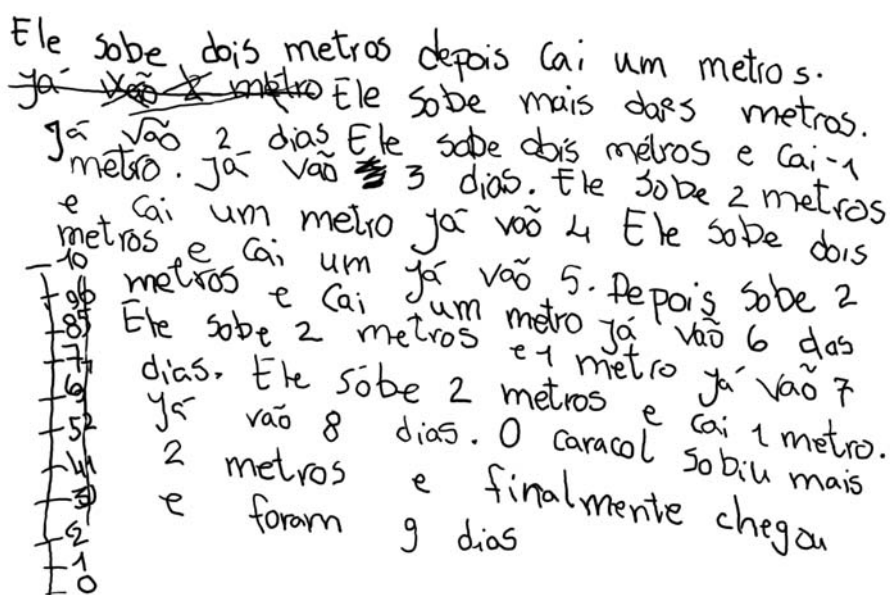 Ele sobe dois metros depois Cai um metros.
Já vão 2 metro Ele sobe mais dois metros.
Já vão 2 dias Ele sobe dois metros e Cai-1
metro. Já vão 3 dias. Ele sobe 2 metros
e Cai um metro já voõ 4 Ele sobe dois
metros e Cai um já vaõ 5. Depois sobe 2
metros e Cai um metro já vaõ 6 das
Ele sobe 2 metros e 1 metro já vaõ 7
dias. Ele sobe 2 metros e cai 1 metro.
Já vaõ 8 dias. O caracol sobiu mais
2 metros e finalmente chegou
e foram 9 dias
10
9 6
8 5
7
6
5 2
4 1
3
2
1
0